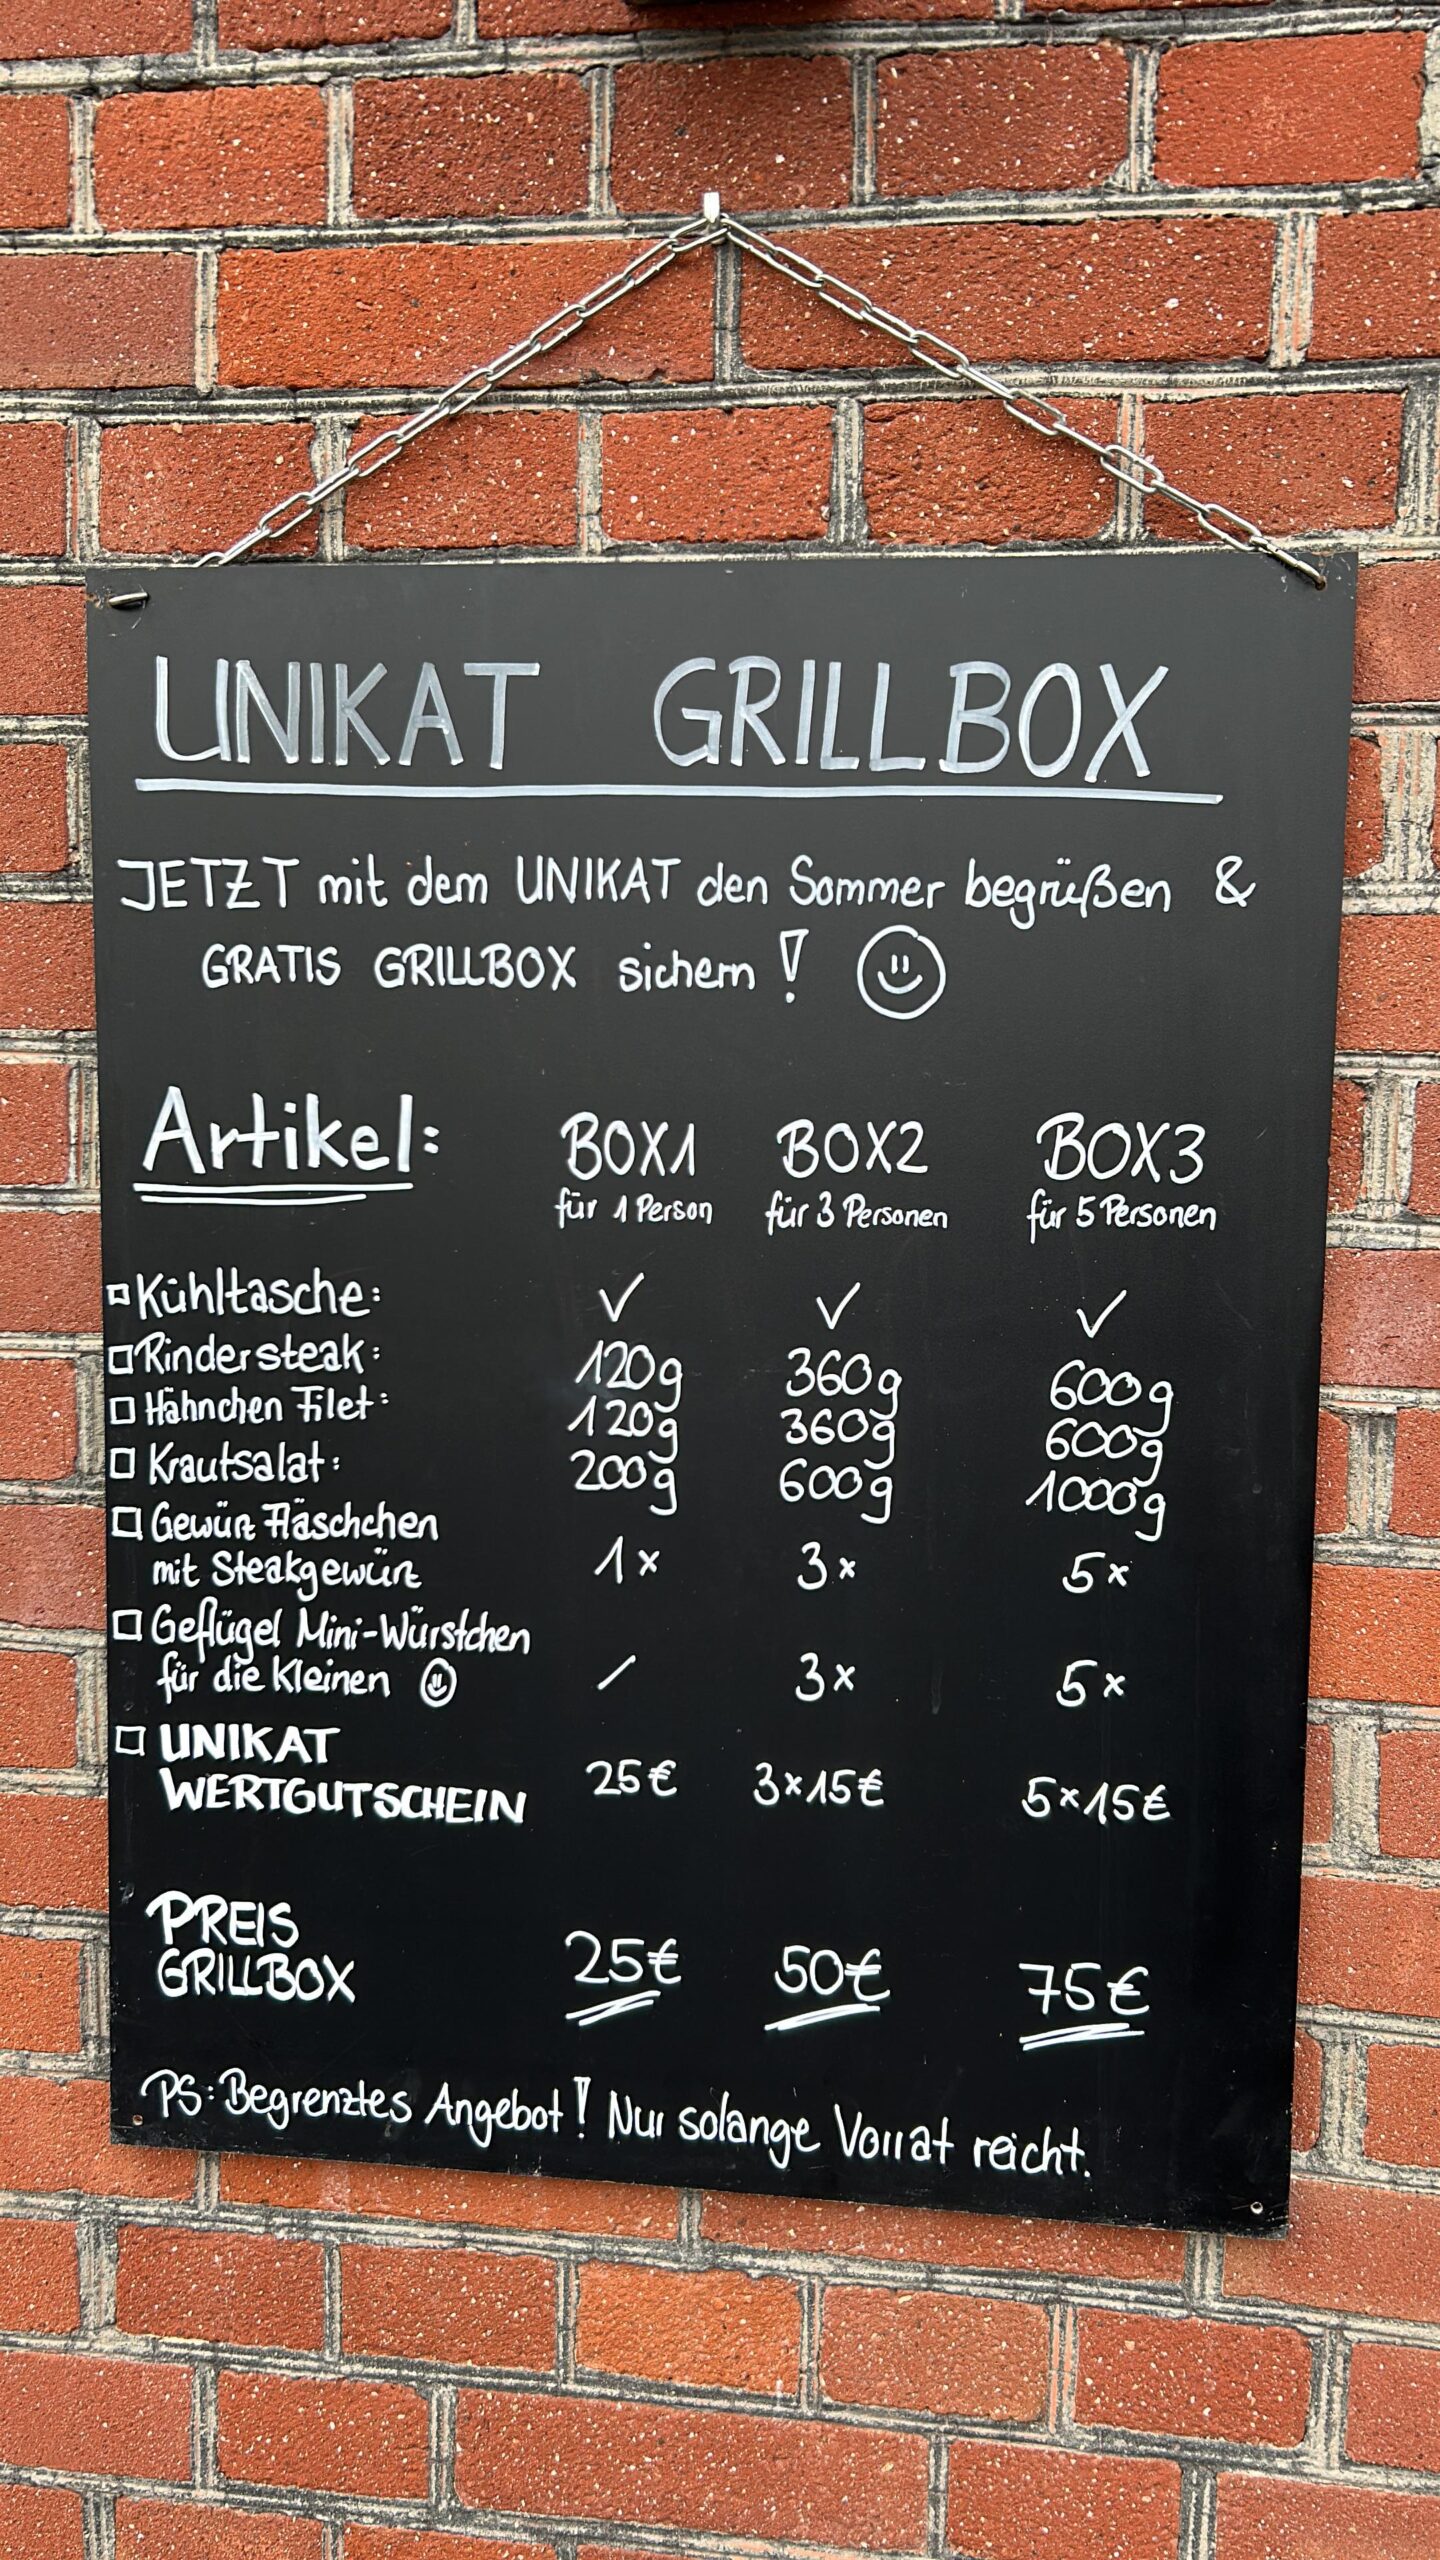 UNIKAT GRILLBOX
JETZT mit dem UNIKAT den Sommer begrüßen &
GRATIS GRILLBOX sichern!
Artikel: BOX1 BOX2 BOX3
für 1 Person für 3 Personen für 5 Personen
Kühltasche: ✓ ✓ ✓
Rindersteak: 120g 360g 600g
Hähnchen Filet: 120g 360g 600g
Krautsalat: 200g 600g 1000g
Gewürz Fläschchen
mit Steakgewürz 1x 3x 5x
Geflügel Mini-Würstchen
für die Kleinen / 3x 5x
UNIKAT
WERTGUTSCHEIN 25€ 3x15€ 5x15€
PREIS
GRILLBOX 25€ 50€ 75€
PS: Begrenztes Angebot! Nur solange Vorrat reicht.